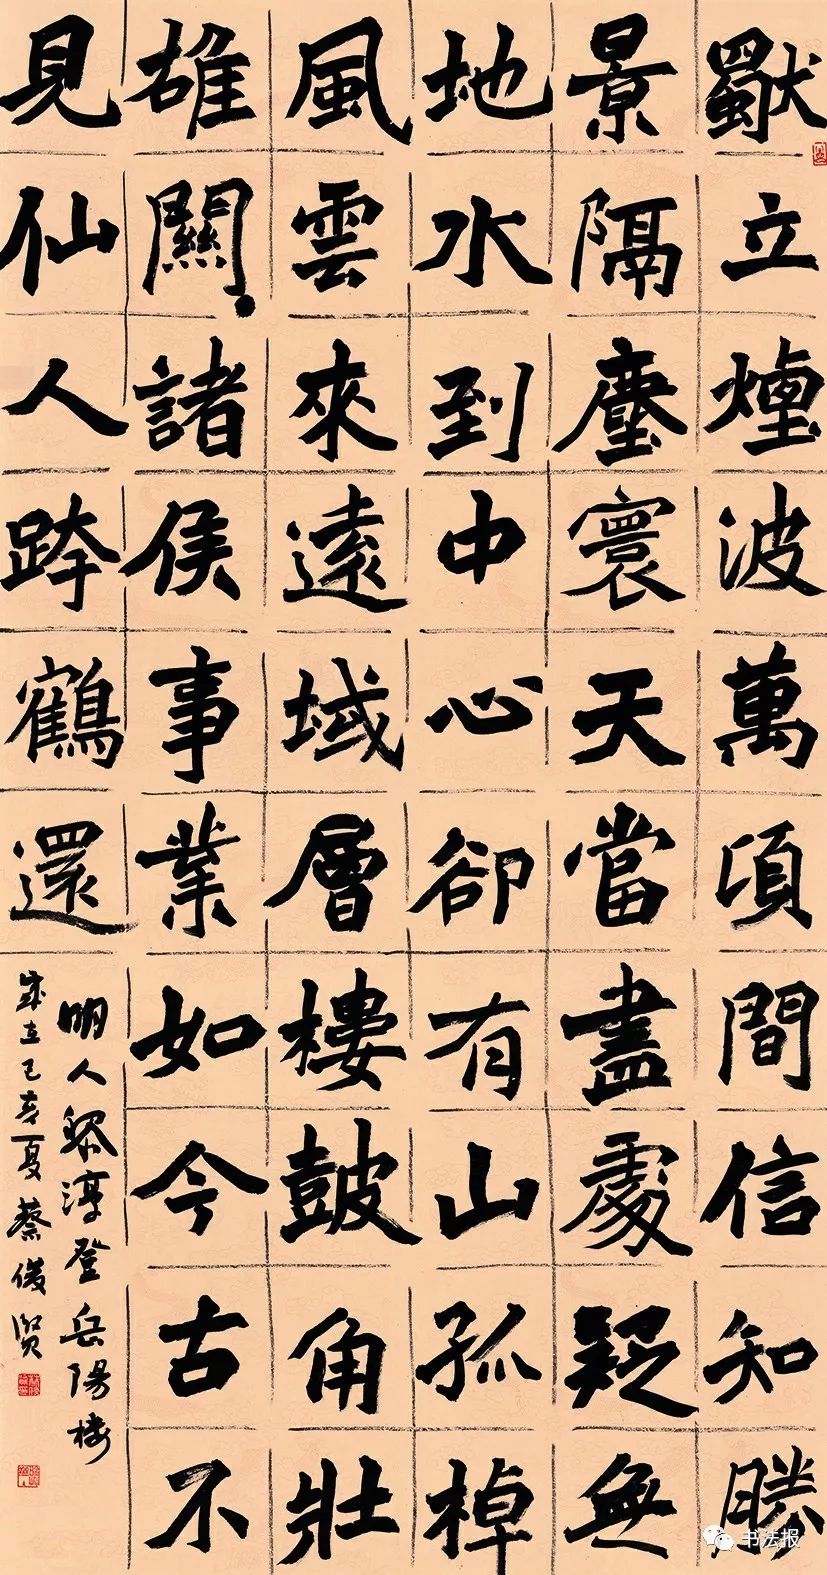 獨立煙波萬頃間信知勝
景隔塵寰天當盡處疑無
地水到中心卻有山孤棹
風雲來遠域層樓鼓角壯
雄關諸侯事業如今古不
見仙人跨鶴還
明人黎淳登岳陽樓
歲在己亥夏蔡俊賢
书法报